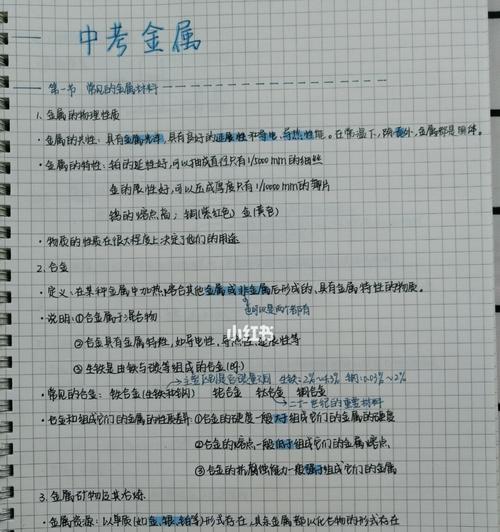 中考金属
第一节 常见的金属材料
1. 金属的物理性质
· 金属的共性：具有金属光泽，具有良好的延展性和导电、导热性能。在常温下，除汞外，金属都是固体。
· 金属的特性：铂的延性好，可以抽成直径只有1/5000mm的细丝
金的展性好，可以压成厚度只有1/10000mm的薄片
钨的熔点高；铜(紫红色) 金(黄色)
· 物质的性质在很大程度上决定了他们的用途
2. 合金
· 定义：在某种金属中加热熔合其他金属或非金属后形成的、具有金属特性的物质。
也可以是两个都有
· 说明：①合金属于混合物
②合金具有金属特性，如导电性、导热性、延展性等
③生铁是由铁与碳等组成的合金
小红书
主要区别是含碳量不同 生铁：2%~4.3% 钢：0.03%~2%
· 常见的合金：铁合金(生铁和钢) 铝合金 钛合金 铜合金
二十一世纪的重要材料
· 合金和组成它们的金属的性质差异：①合金的硬度一般大于组成它们的金属的硬度
②合金的熔点一般低于组成它们的金属熔点
③合金的抗腐蚀能力一般强于组成它们的金属
3. 金属矿物及其冶炼
· 金属资源：以单质(如金、银、铂等)形式存在，其余金属都以化合物的形式存在